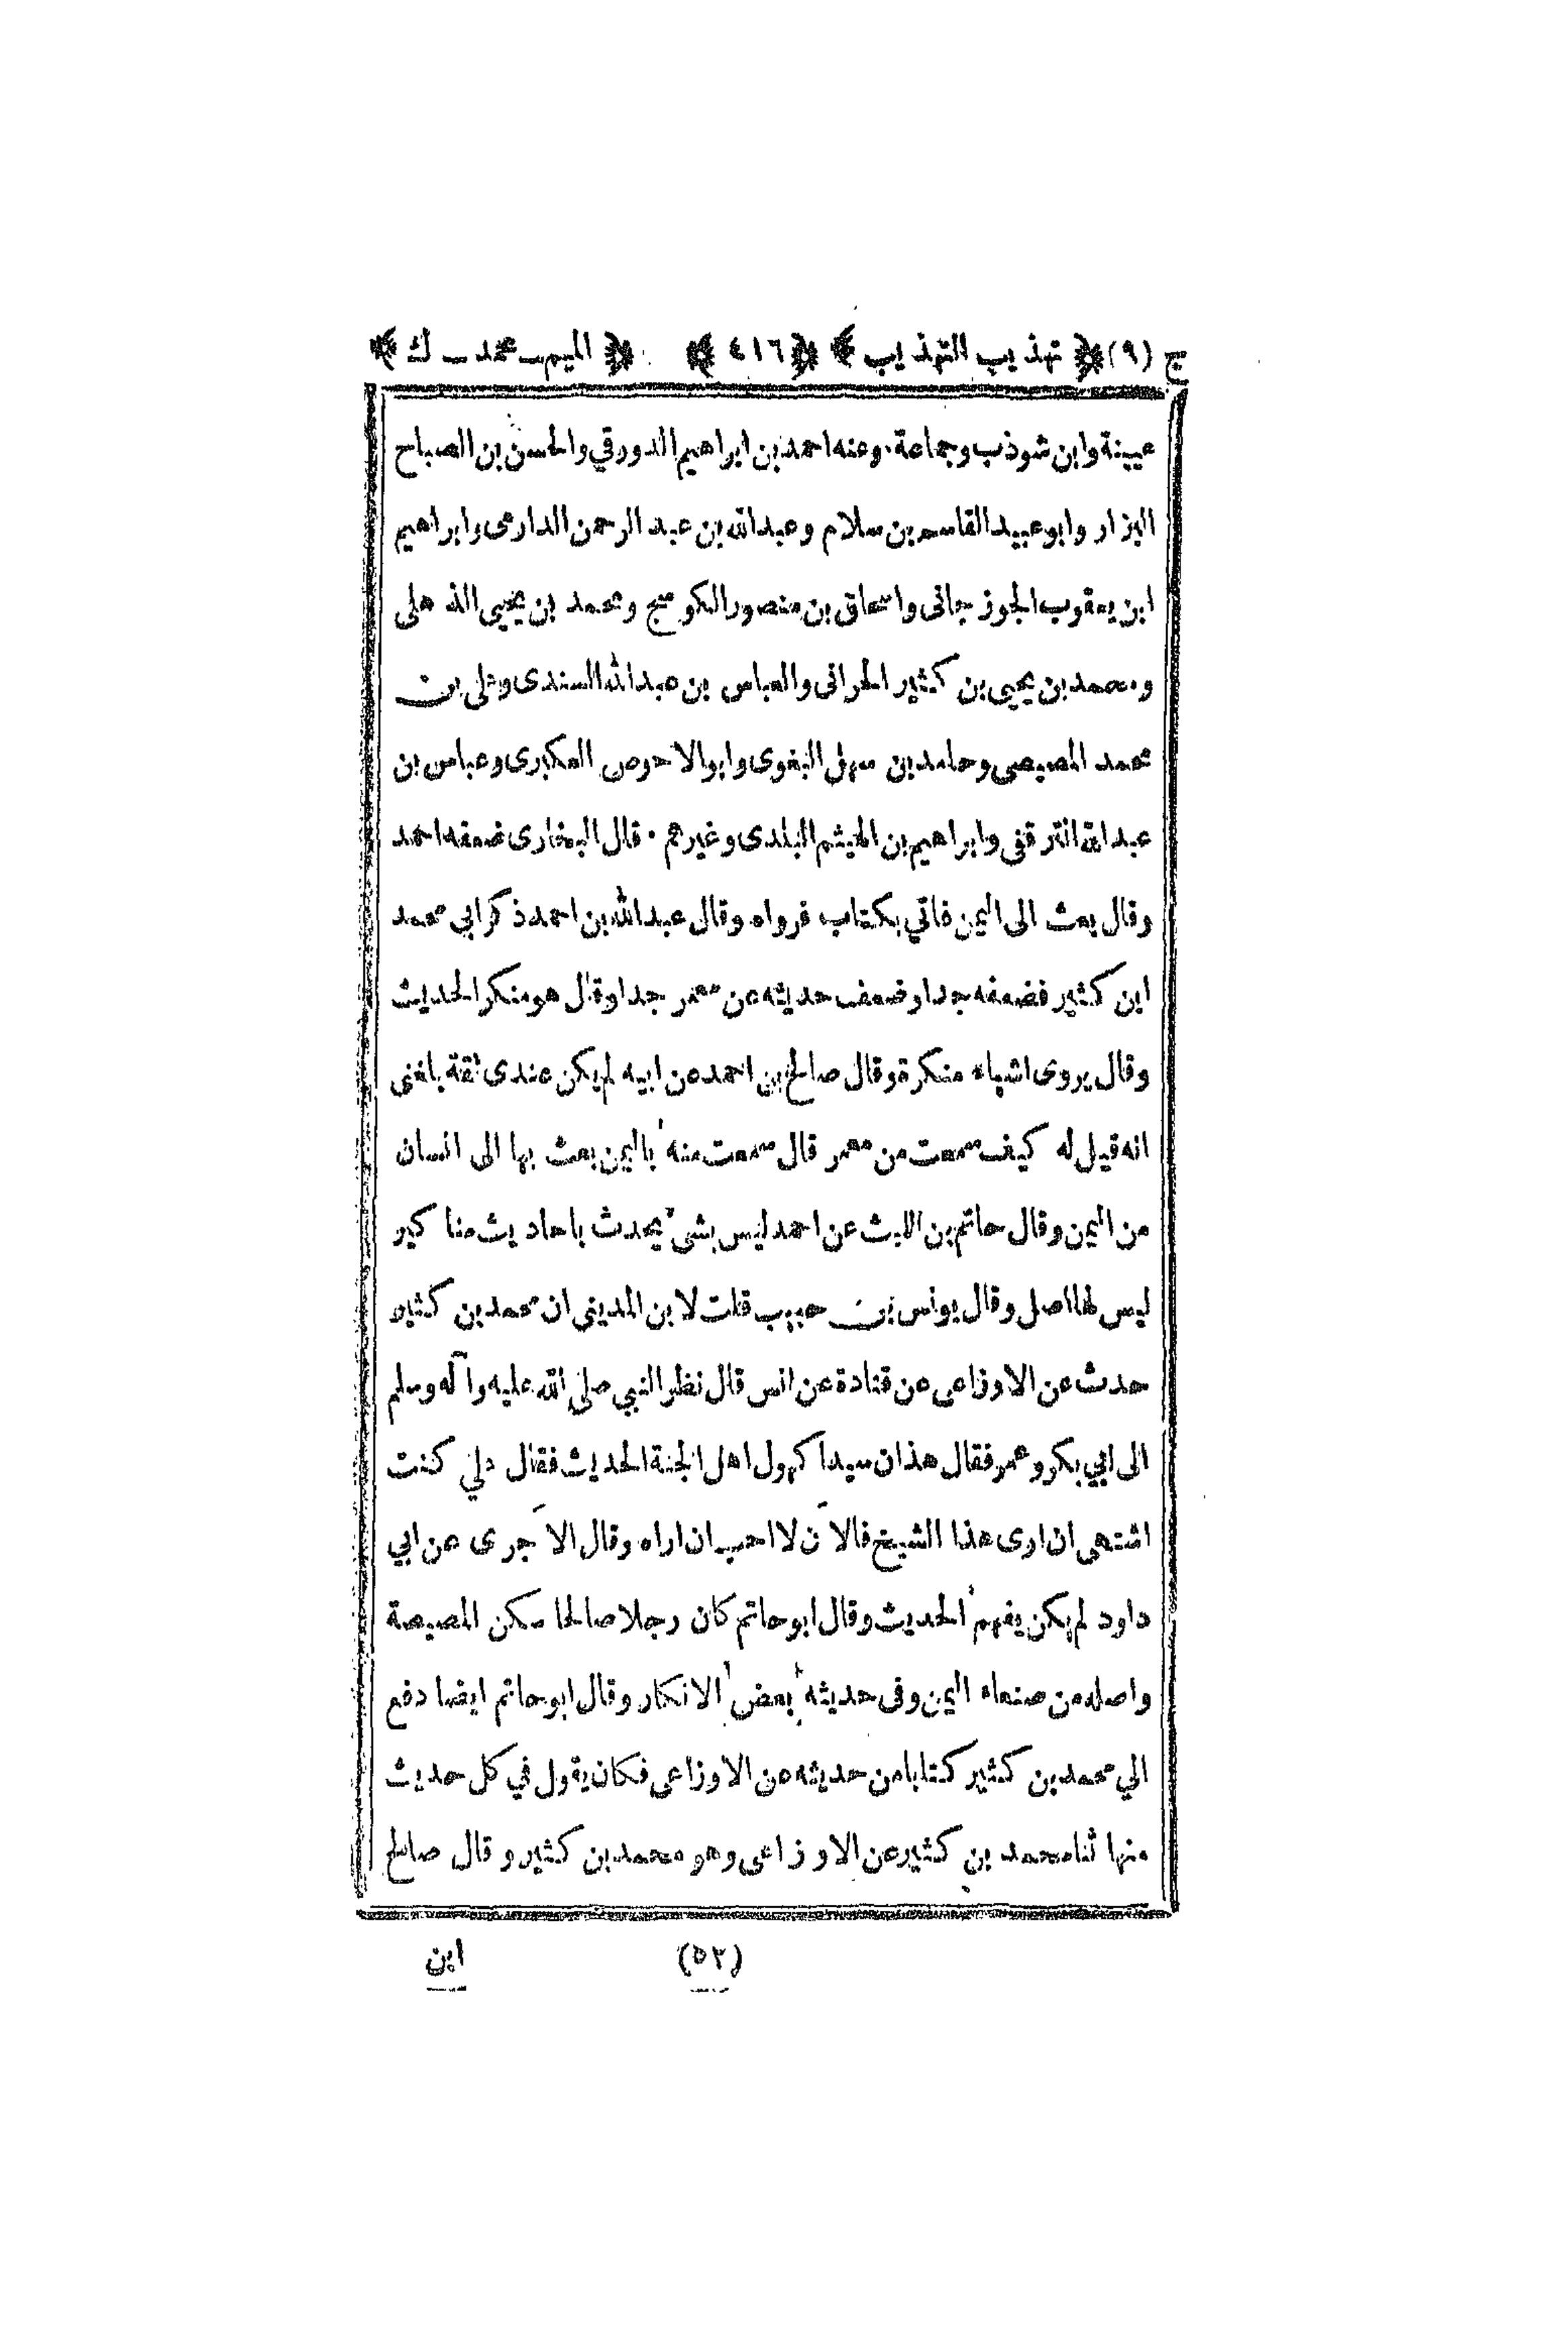 ج (٩) ﴿ تهذيب التهذيب ﴾ ﴿ ٤١٦ ﴾ ﴿ الميم ـ محمد ـ ك ﴾
عيينة وابن شوذب وجماعة . وعنه احمد بن ابراهيم الدورقي والحسن بن الصباح
البزار وابو عبيد القاسم بن سلام وعبد الله بن عبد الرحمن الدارمى وابراهيم
ابن يعقوب الجوزجانى واسحاق بن منصور الكوسج ومحمد بن يحيى الذهلى
ومحمد بن يحيى بن كثير الحرانى والعباس بن عبد الله السندى وعلى بن
محمد المصيصى وحامد بن سهل البغوى وابو الاحوص العكبرى وعباس بن
عبد الله الترقفى وابراهيم بن الهيثم البلدى وغيرهم . قال البخارى ضعفه احمد
وقال بعث الى اليمن فاتي بكتاب فرواه وقال عبد الله بن احمد ذكر ابي محمد
ابن كثير فضعفه جدا وضعف حديثه عن معمر جدا وقال هو منكر الحديث
وقال يروى اشياء منكرة وقال صالح بن احمد عن ابيه لم يكن عندى ثقة بلغنى
انه قيل له كيف سمعت من معمر قال سمعت منه باليمن بعث بها الى انسان
من اليمن وقال حاتم بن الليث عن احمد ليس بشئ يحدث باحاديث مناكير
ليس لها اصل وقال يونس بن حبيب قلت لابن المديني ان محمد بن كثير
حدث عن الاوزاعى عن قتادة عن انس قال نظر النبي صلى الله عليه وآله وسلم
الى ابي بكر وعمر فقال هذان سيدا كهول اهل الجنة الحديث فقال علي كنت
اشتهى ان ارى هذا الشيخ فالآن لا احب ان اراه وقال الآجرى عن ابي
داود لم يكن يفهم الحديث وقال ابو حاتم كان رجلا صالحا سكن المصيصة
واصله من صنعاء اليمن وفى حديثه بعض الانكار وقال ابو حاتم ايضا دفع
الي محمد بن كثير كتابا من حديثه عن الاوزاعى فكان يقول في كل حديث
منها ثنا محمد بن كثير عن الاوزاعى وهو محمد بن كثير وقال صالح
(٥٢) ابن